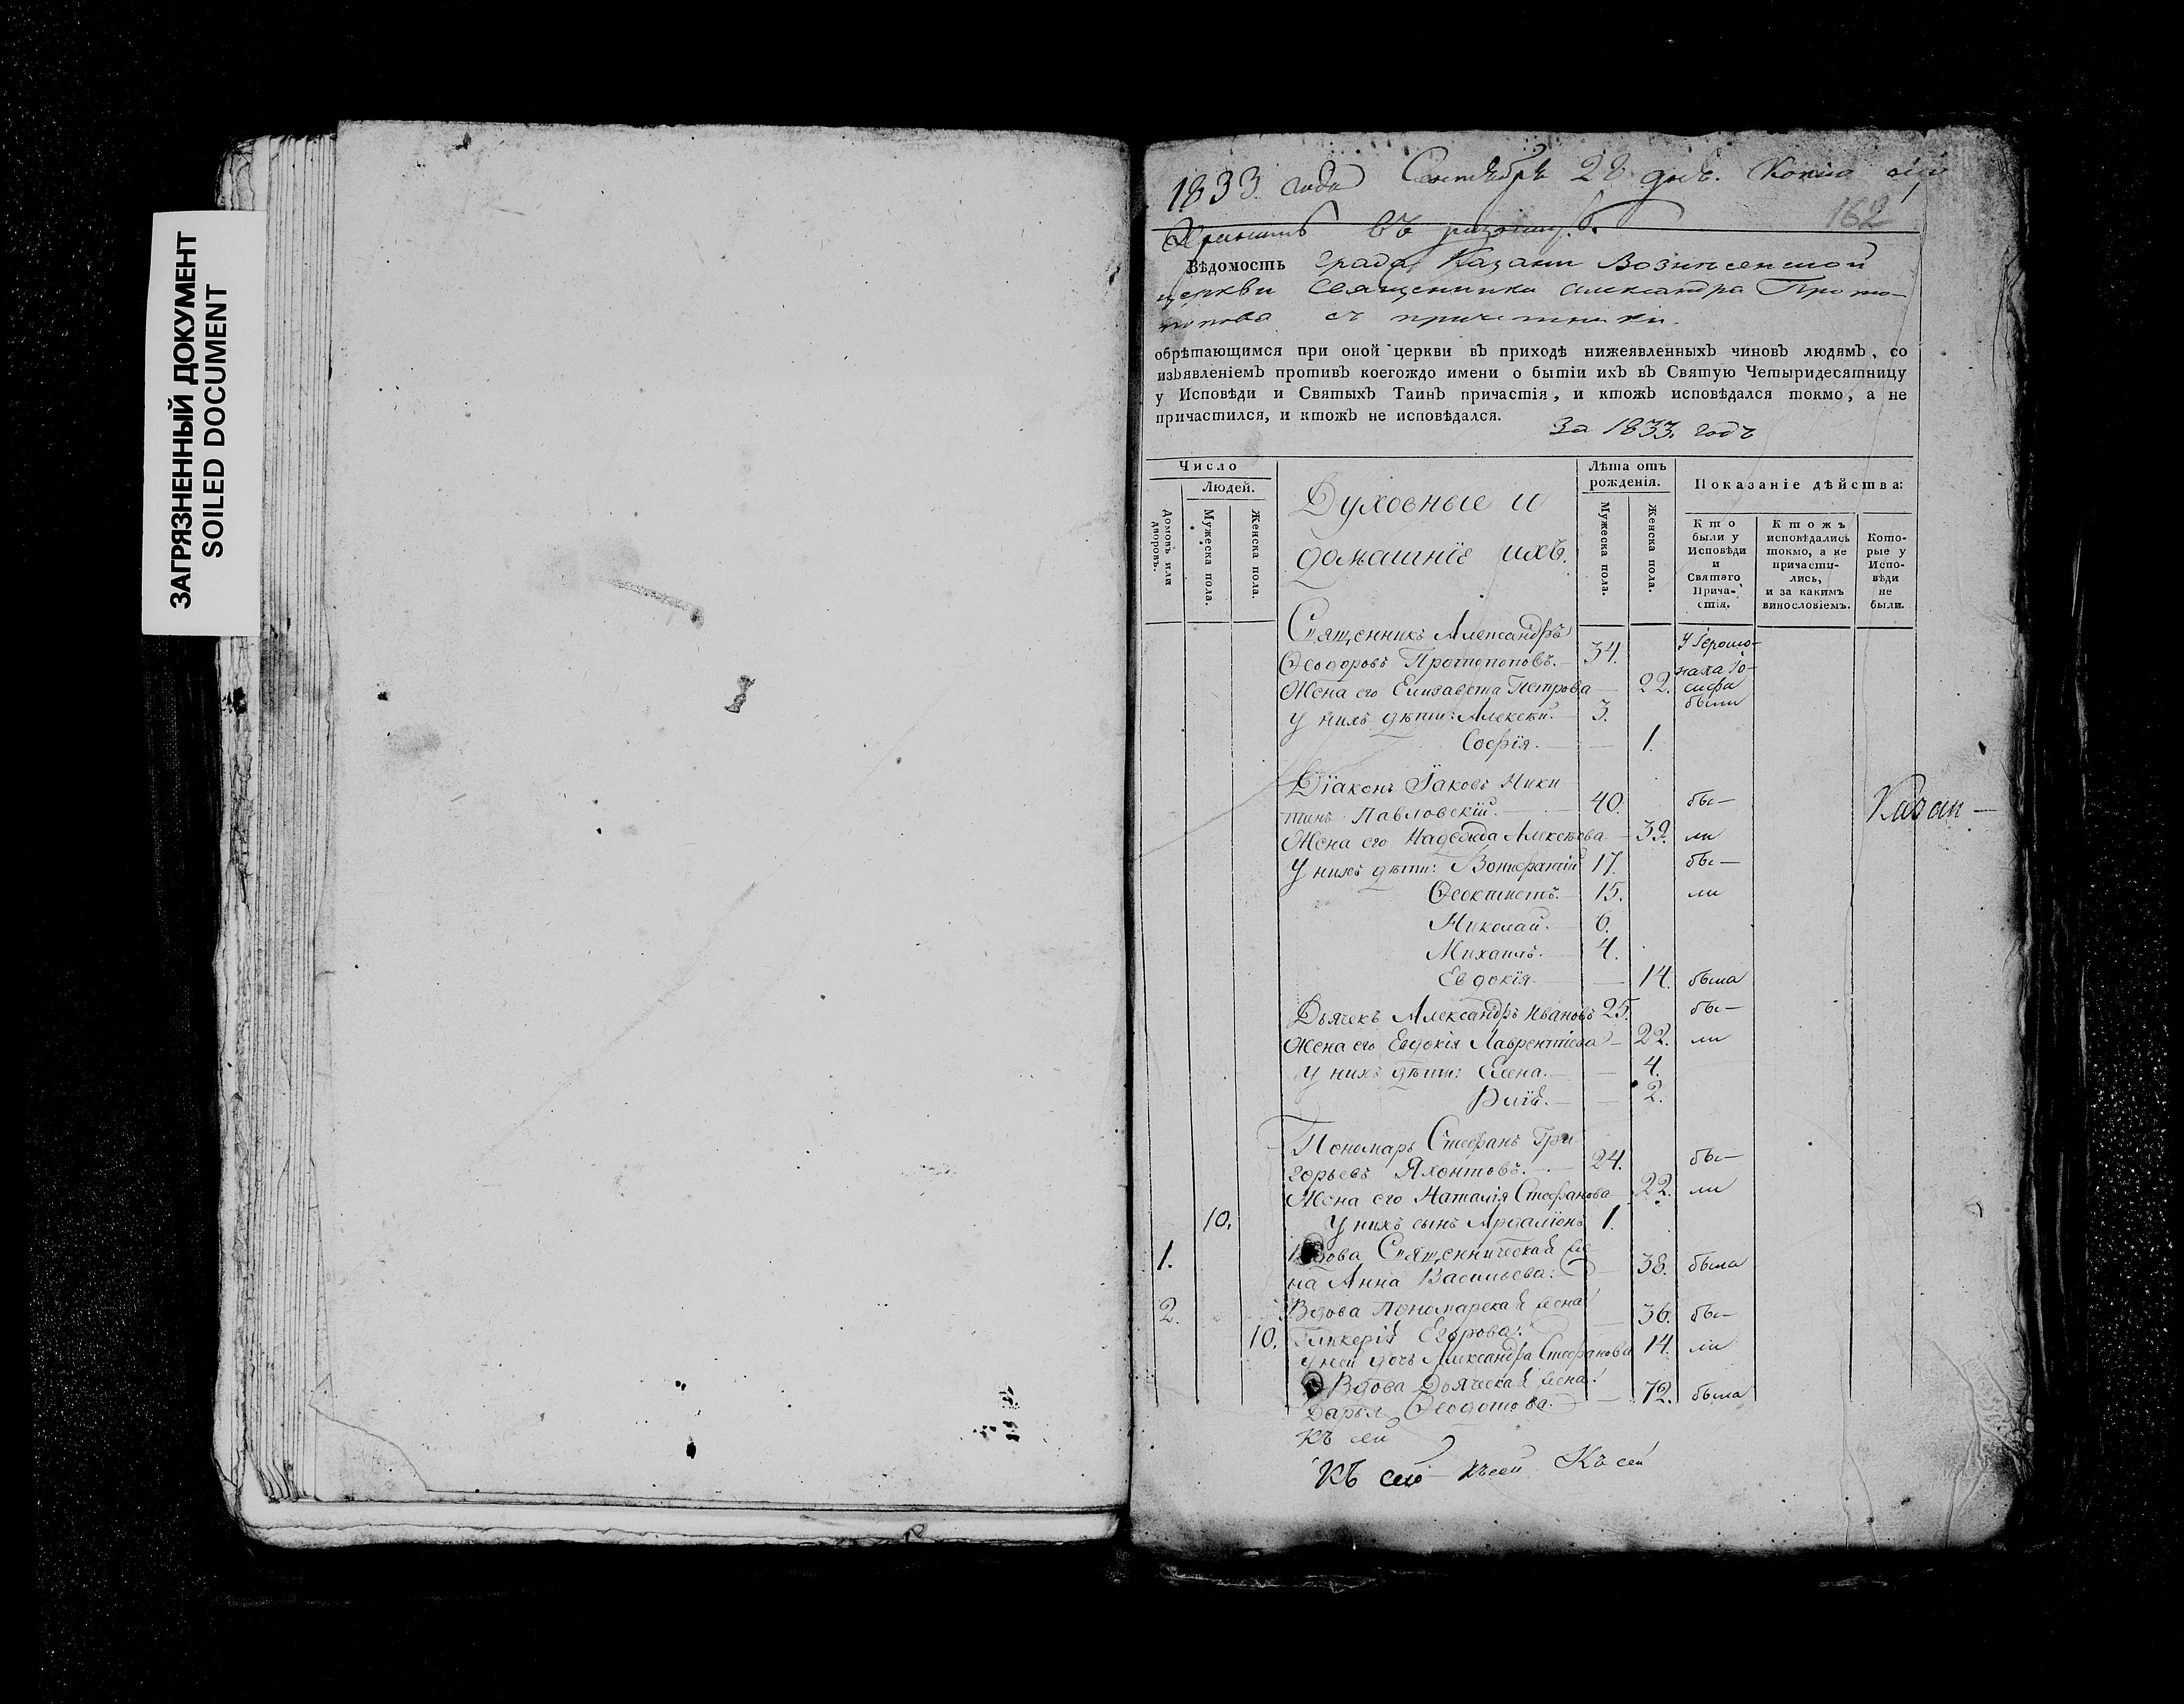 ЗАГРЯЗНЕННЫЙ ДОКУМЕНТ
SOILED DOCUMENT
1833 года Сентября 28 дня. Копію сію
Хранить въ ризницѣ.
162
Вѣдомость града Казани Вознесенской
церкви Священника Александра Прото-
попова съ причетники.
обрѣтающимся при оной церкви въ приходѣ нижеявленныхъ чиновъ людямъ, со
изъявленіемъ противъ коегождо имени о бытіи ихъ въ Святую Четыридесятницу
у Исповѣди и Святыхъ Таинъ причастія, и ктожъ исповѣдался токмо, а не
причастился, и ктожъ не исповѣдался.
За 1833. годъ
Число
Людей.
Домовъ или дворовъ.
Мужеска пола.
Женска пола.
Духовные и
домашніе ихъ.
Лѣта отъ рожденія.
Мужеска пола.
Женска пола.
Показаніе дѣйства:
Кто были у Исповѣди и Святаго Прича-стія.
Ктожъ исповѣдались токмо, а не причасти-лись, и за какимъ винословіемъ.
Кото-рые у Испо-вѣди не были.
Священникъ Александръ
Ѳеодоровъ Протопоповъ. 34. У Іеромо-
Жена его Елизавета Петрова 22. наха Іо-сифа
У нихъ дѣти: Алексѣй. 3. были
Софія. 1.
Діаконъ Іаковъ Ники
тинъ Павловскій. 40. бы-
Жена его Надежда Алексѣева 39. ли
У нихъ дѣти: Вонифатій 17. бы-
Ѳеоктистъ. 15. ли
Николай. 6.
Михаилъ. 4.
Евдокія. 14. была
Казан-
Дьячекъ Александръ Ивановъ 25. бы-
Жена его Евдокія Лаврентіева 22. ли
У нихъ дѣти: Елена. 4.
2.
Пономарь Стефанъ Гри
горьевъ Яхонтовъ. 24. бы-
Жена его Наталія Стефанова 22. ли
10. У нихъ сынъ Ардаліонъ 1.
1. Вдова Священническая же
на Анна Васильева: 38. была
2. Вдова Пономарская жена 36. бы-
10. Гликерія Егорова:
у ней дочь Александра Стефанова 14. ли
Вдова Дьяческая жена 72. была
Дарья Ѳеодотова.
Къ сей
Къ сей Къ сей Къ сей